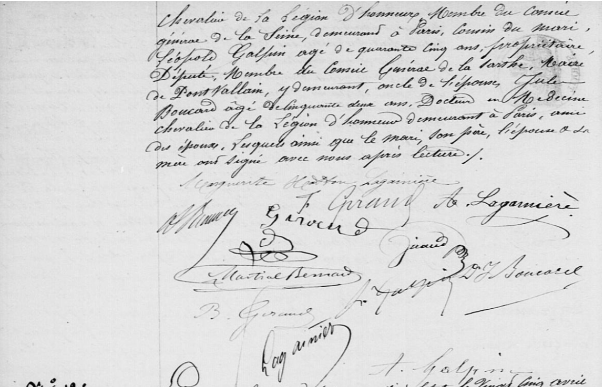 chevalier de la Légion d'honneur, Membre du Conseil
général de la Seine, demeurant à Paris, cousin du mari,
Léopold Galpin agé de quarante cinq ans, propriétaire,
Député, Membre du Conseil Général de la Sarthe, Maire
de Pontvallain, y demeurant, oncle de l'épouse, Jules
Boucard âgé de cinquante deux ans, Docteur en Médecine
chevalier de la Légion d'honneur demeurant à Paris, ami
des époux, Lesquels ainsi que le mari, son père, l'épouse & sa
mère ont signé avec nous après lecture ./.
Marguerite Lagarnière
F Giraud A Lagarnière
Giraud
Giraud
Martial Bernard
Galpin Dr J Boucard
B. Giraud
Lagarnière
A. Galpin
Vingt cinq avril